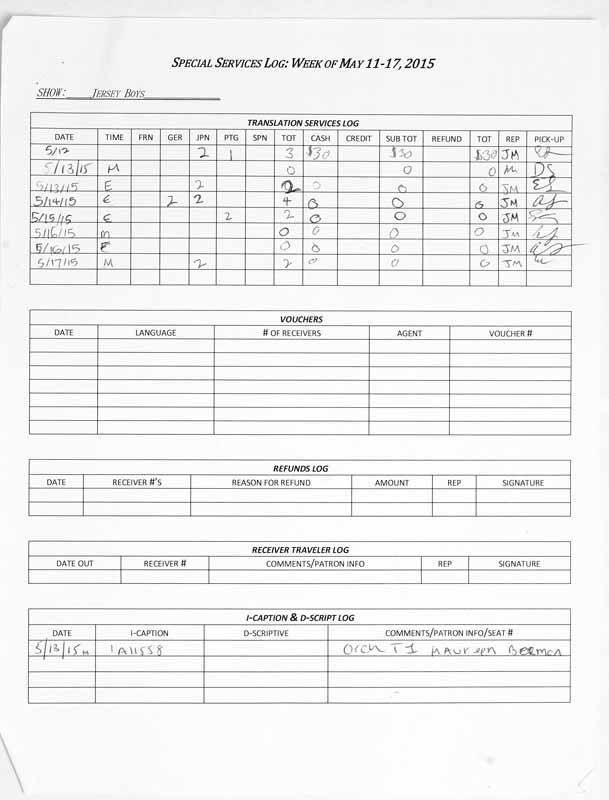 SPECIAL SERVICES LOG: WEEK OF MAY 11-17, 2015
SHOW: JERSEY BOYS
TRANSLATION SERVICES LOG
DATE TIME FRN GER JPN PTG SPN TOT CASH CREDIT SUB TOT REFUND TOT REP PICK-UP
5/12 2 1 3 $30 $30 $30 JM
5/13/15 M 0 0 0 DS
5/13/15 E 2 2 0 0 0 JM
5/14/15 E 2 2 4 0 0 0 JM
5/15/15 E 2 2 0 0 0 JM
5/16/15 M 0 0 0 0 JM
5/16/15 E 0 0 0 0 JM
5/17/15 M 2 2 0 0 0 JM
VOUCHERS
DATE LANGUAGE # OF RECEIVERS AGENT VOUCHER #
REFUNDS LOG
DATE RECEIVER #'S REASON FOR REFUND AMOUNT REP SIGNATURE
RECEIVER TRAVELER LOG
DATE OUT RECEIVER # COMMENTS/PATRON INFO REP SIGNATURE
I-CAPTION & D-SCRIPT LOG
DATE I-CAPTION D-SCRIPTIVE COMMENTS/PATRON INFO/SEAT #
5/13/15 M 1A11558 Orch T1 Maureen Berman